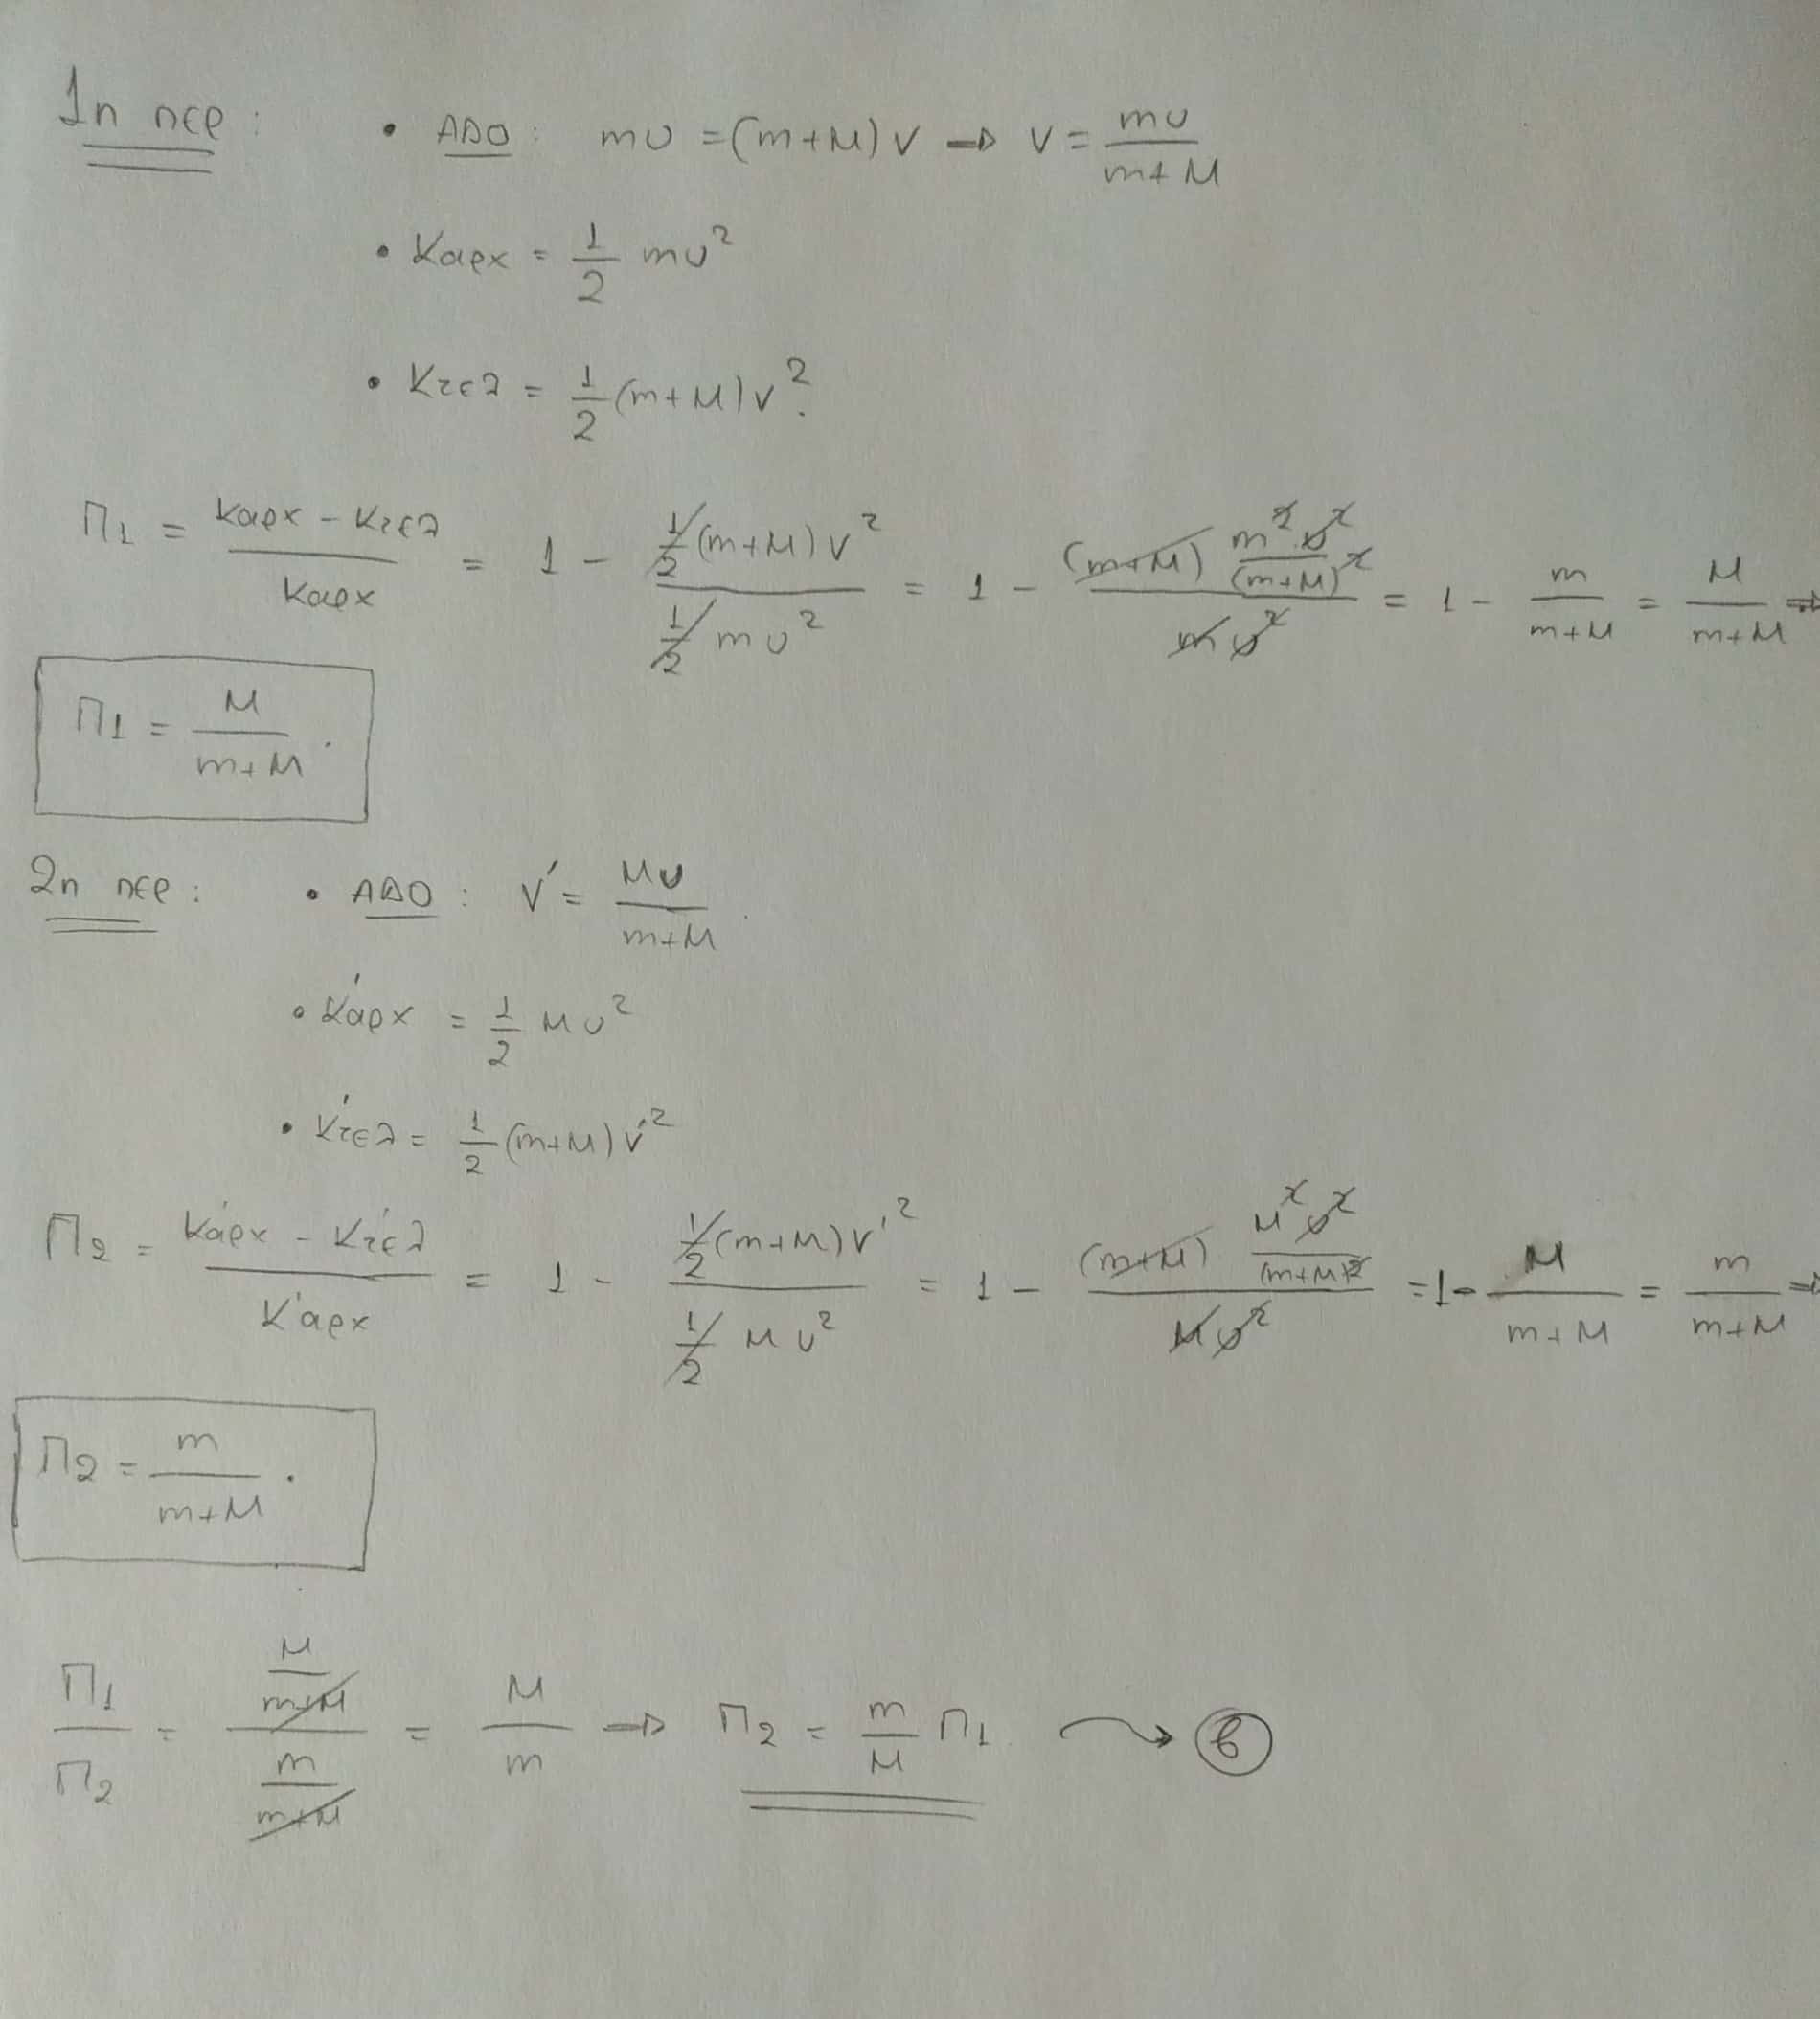 1η περ: • ΑΔΟ: mυ = (m+M) V ⇒ V = mυ / m+M
• Kαρχ = 1/2 mυ²
• Kτελ = 1/2 (m+M) V².
Π1 = Kαρχ - Kτελ / Kαρχ = 1 - 1/2 (m+M) V² / 1/2 mυ² = 1 - (m+M) m²υ² / (m+M)² / mυ² = 1 - m / m+M = M / m+M ⇒
Π1 = M / m+M .
2η περ: • ΑΔΟ: V' = Mυ / m+M .
• K'αρχ = 1/2 Mυ²
• K'τελ = 1/2 (m+M) V'²
Π2 = K'αρχ - K'τελ / K'αρχ = 1 - 1/2 (m+M) V'² / 1/2 Mυ² = 1 - (m+M) M²υ² / (m+M)² / Mυ² = 1 - M / m+M = m / m+M ⇒
Π2 = m / m+M .
Π1 / Π2 = M / m+M / m / m+M = M / m ⇒ Π2 = m / M Π1 → β